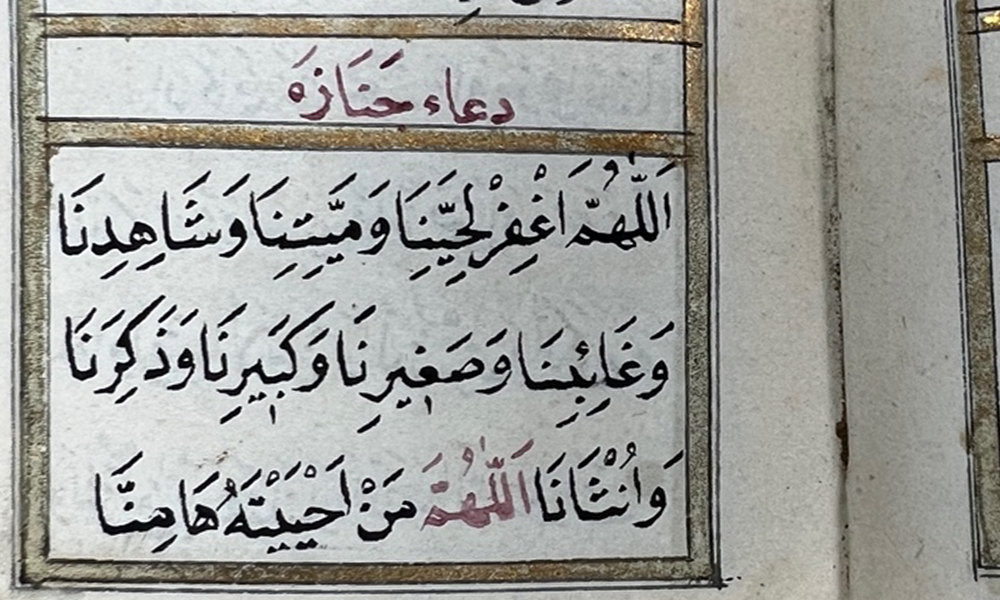 دعاء جَنَازَهَ
اَللّٰهُمَّ اغْفِرْ لِحَيِّنَا وَمَيِّتِنَا وَشَاهِدِنَا
وَغَائِبِنَا وَصَغِيرِنَا وَكَبِيرِنَا وَذَكَرِنَا
وَاُنْثَانَا اَللّٰهُمَّ مَنْ اَحْيَيْتَهُ هَا مِنَّا